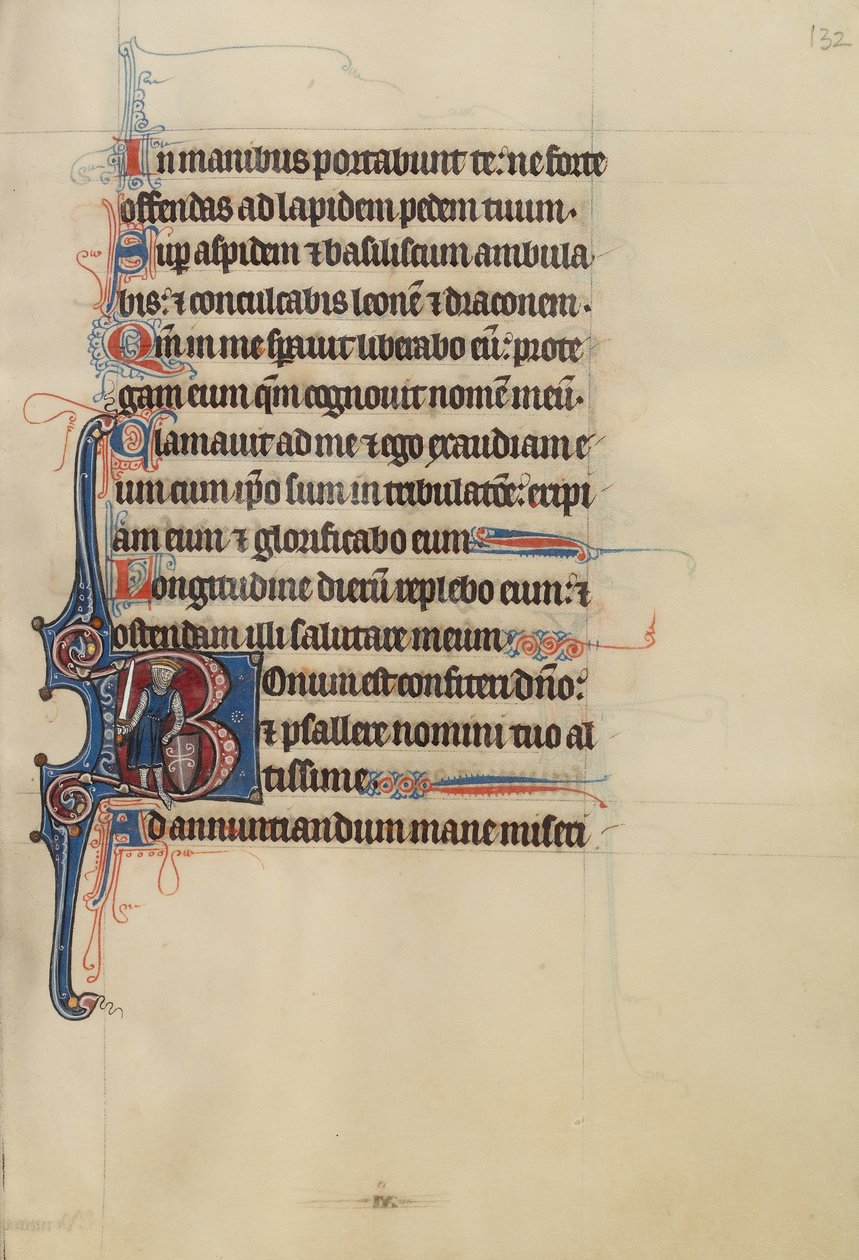 132
In manibus portabunt te: ne forte
offendas ad lapidem pedem tuum.
Sup aspidem ⁊ basiliscum ambula
bis: ⁊ conculcabis leonē ⁊ draconem.
Qm̄ in me sp̄auit liberabo eū: prote
gam eum qm̄ cognouit nomē meū.
Clamauit ad me ⁊ ego exaudiam e
um cum ip̄o sum in tribulatōe: eripi
am eum ⁊ glorificabo eum
Longitudine dierū replebo eum: ⁊
ostendam illi salutare meum
Bonum est confiteri dn̄o:
⁊ psallere nomini tuo al
tissime
Ad annuntiandum mane miseri